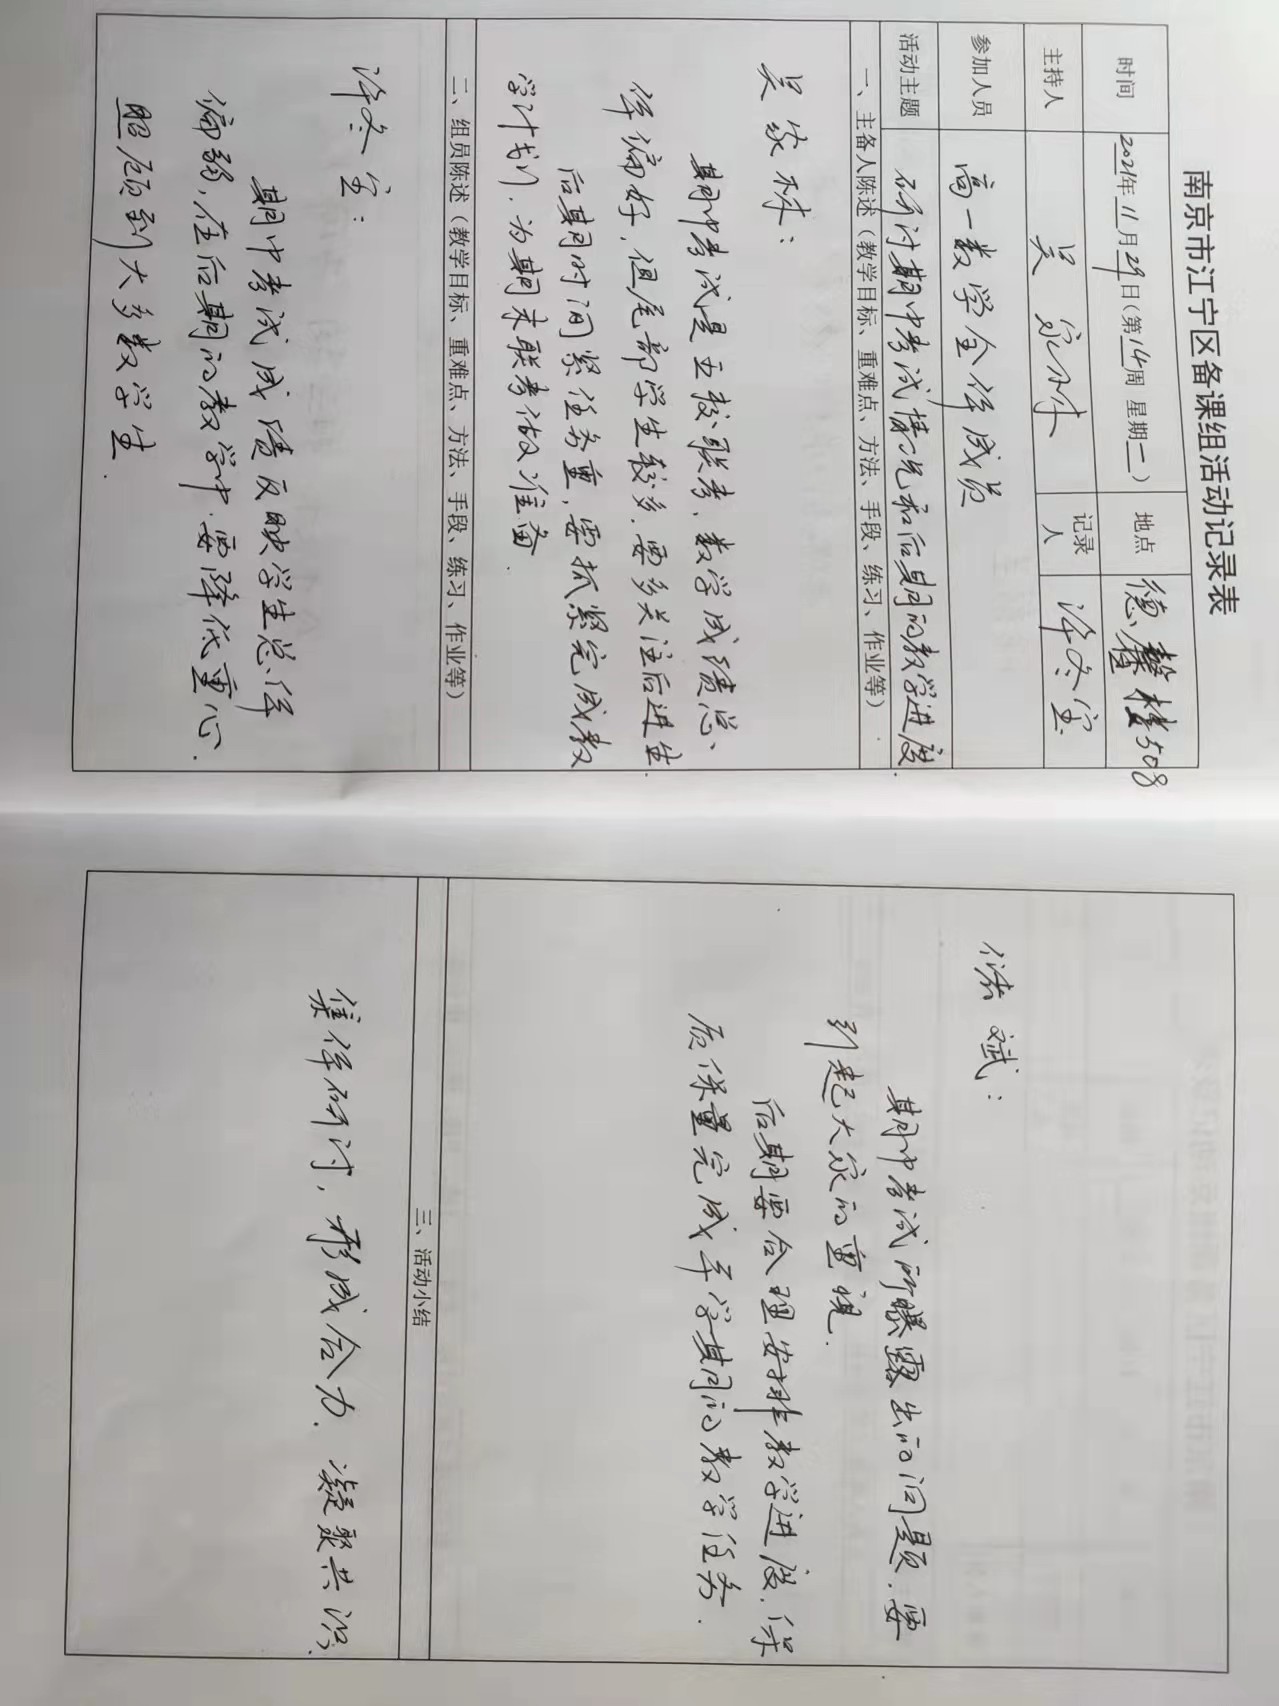 南京市江宁区备课组活动记录表
时间 2021年11月29日(第14周 星期二) 地点 德馨楼508
主持人 吴家林 记录人 许冬宝
参加人员 高一数学全体成员
活动主题 研讨期中考试情况和后期的教学进度.
一、主备人陈述(教学目标、重难点、方法、手段、练习、作业等)
吴家林:
期中考试是五校联考、数学成绩总、
体偏好,但尾部学生较多.要多关注后进生.
后期时间紧任务重,要抓紧完成教
学计划,为期末联考做准备.
二、组员陈述(教学目标、重难点、方法、手段、练习、作业等)
许冬宝:
期中考试成绩反映学生总体
偏弱,在后期的教学中.要降低重心.
照顾到大多数学生.
斌:
期中考试所曝露出的问题.要
引起大家的重视.
后期要合理安排教学进度.保
质保量完成本学期的教学任务.
三、活动小结
集体研讨,形成合力、凝聚共识.